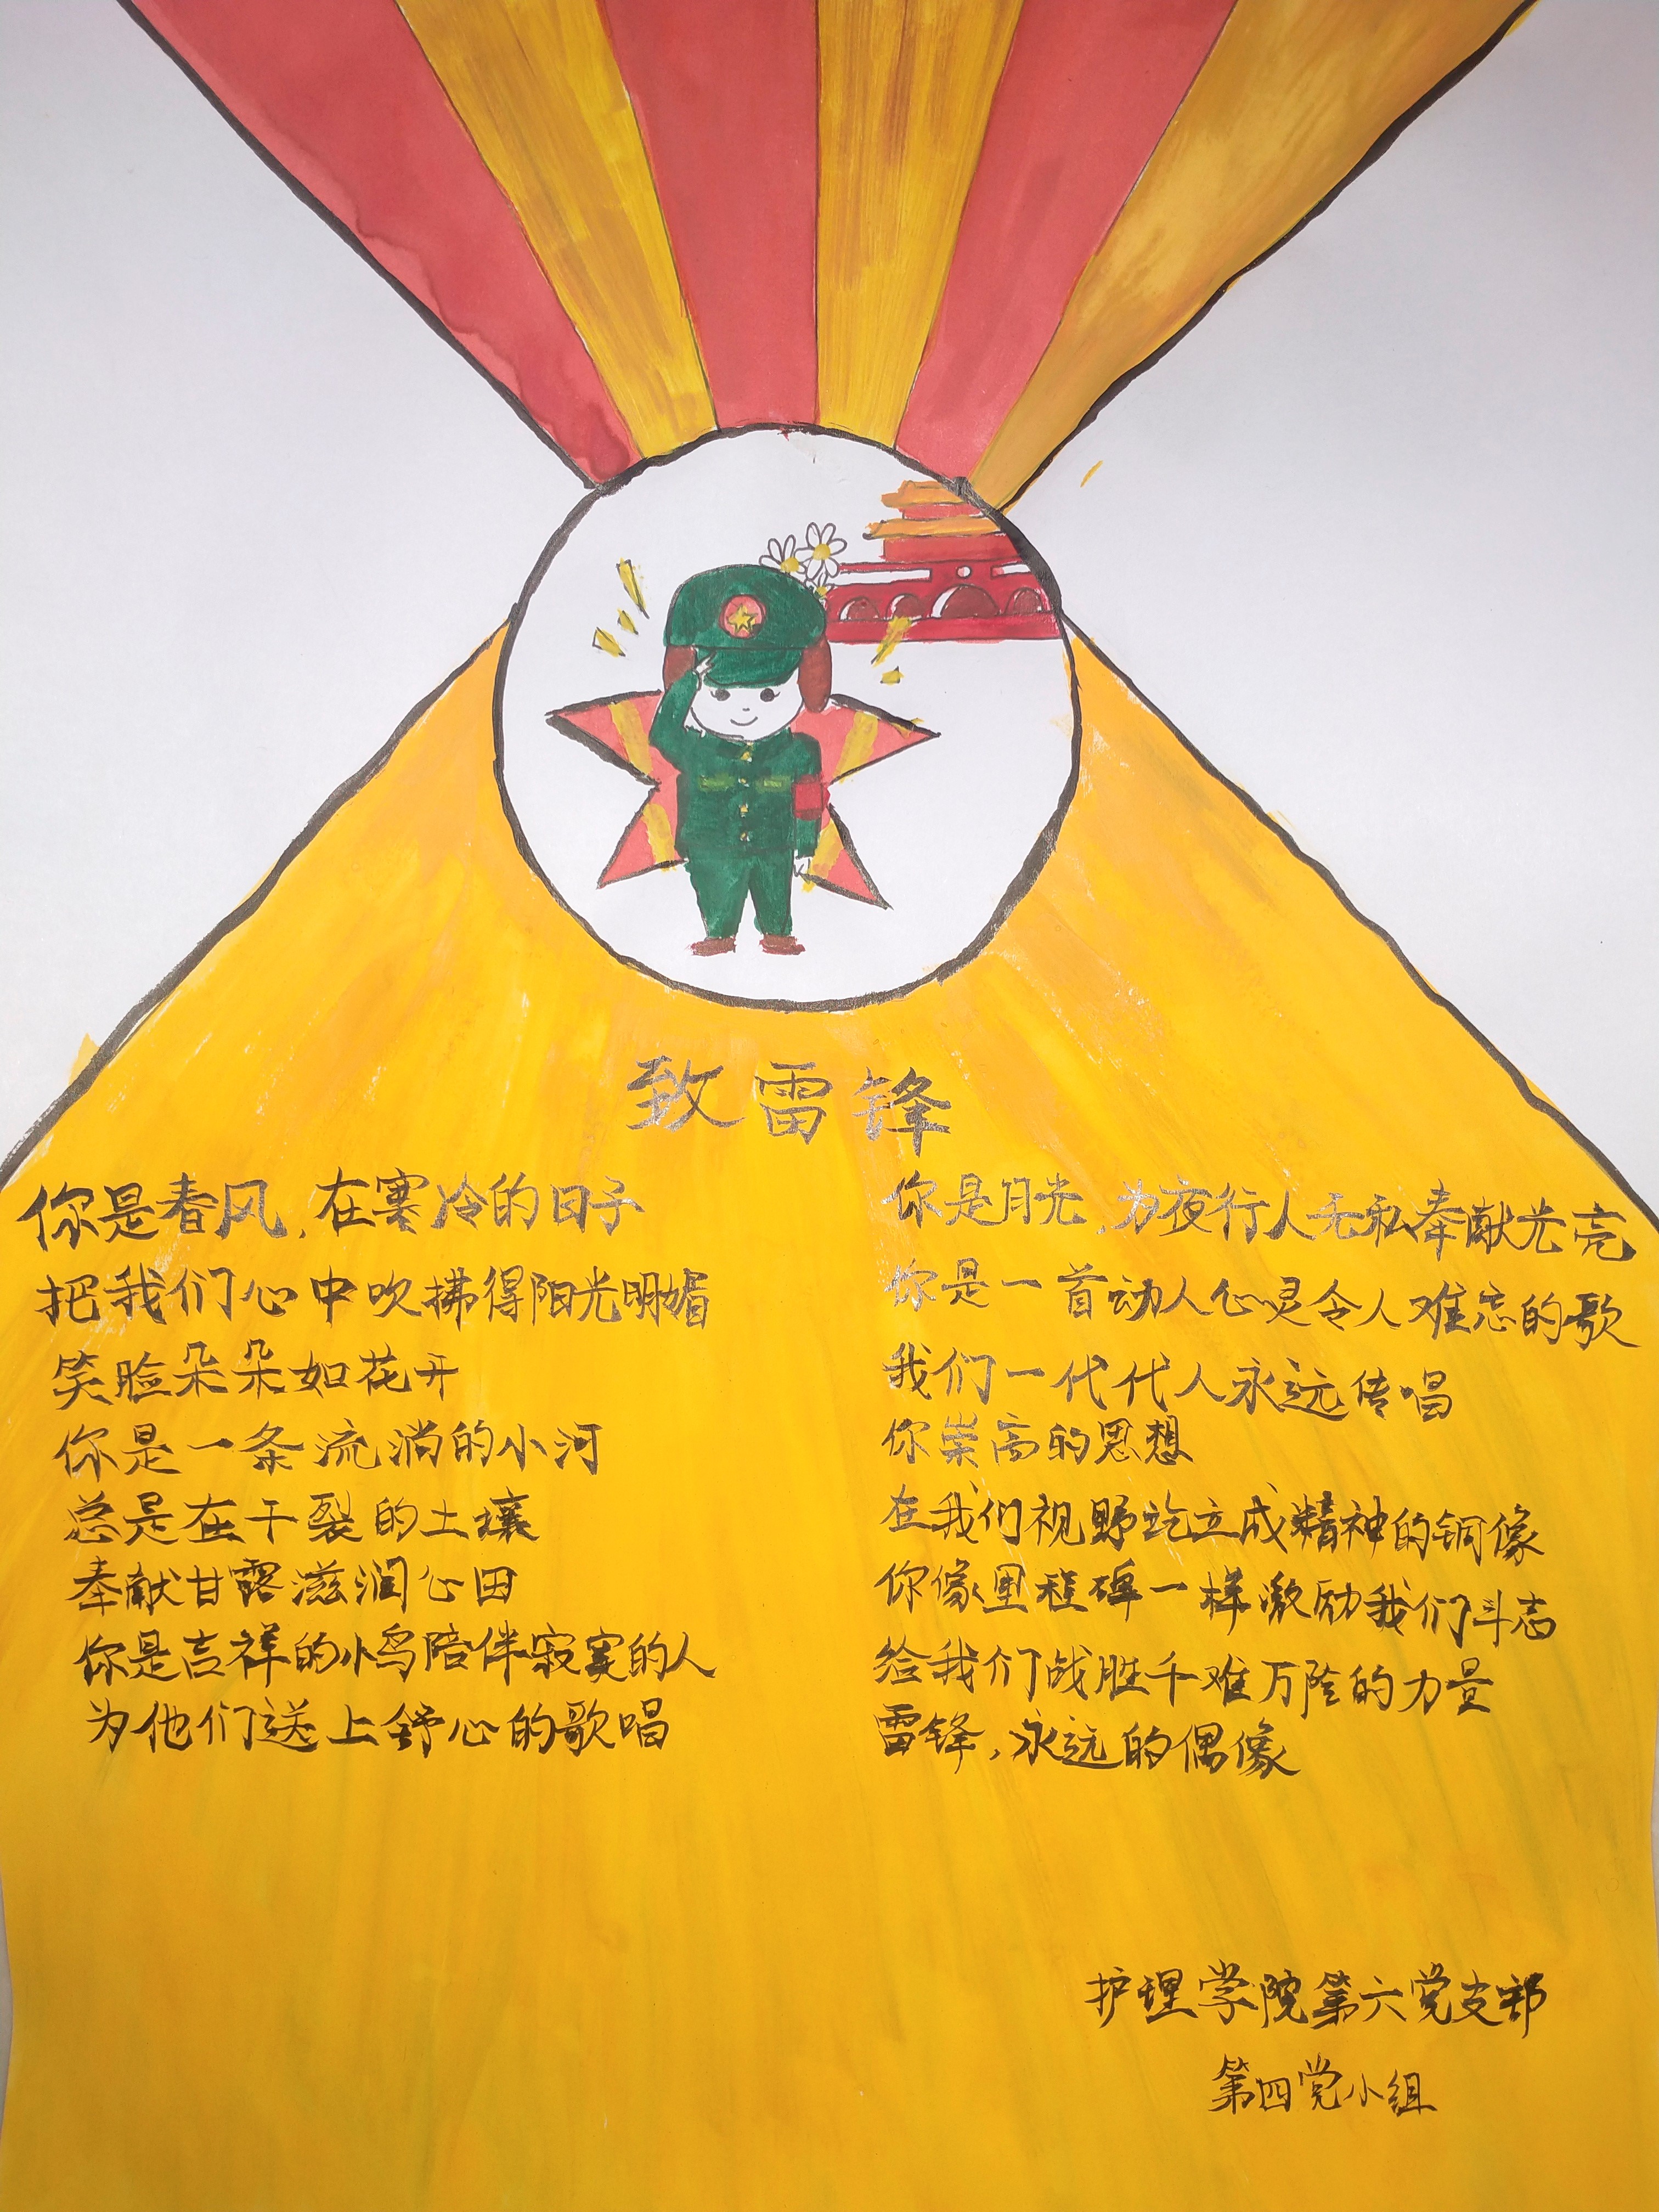 致雷锋
你是春风,在寒冷的日子
把我们心中吹拂得阳光明媚
笑脸朵朵如花开
你是一条流淌的小河
总是在干裂的土壤
奉献甘露滋润心田
你是吉祥的小鸟陪伴寂寞的人
为他们送上舒心的歌唱
你是月光,为夜行人无私奉献光亮
你是一首动人心灵令人难忘的歌
我们一代代人永远传唱
你崇高的思想
在我们视野屹立成精神的铜像
你像里程碑一样激励我们斗志
给我们战胜千难万险的力量
雷锋,永远的偶像
护理学院第六党支部
第四党小组